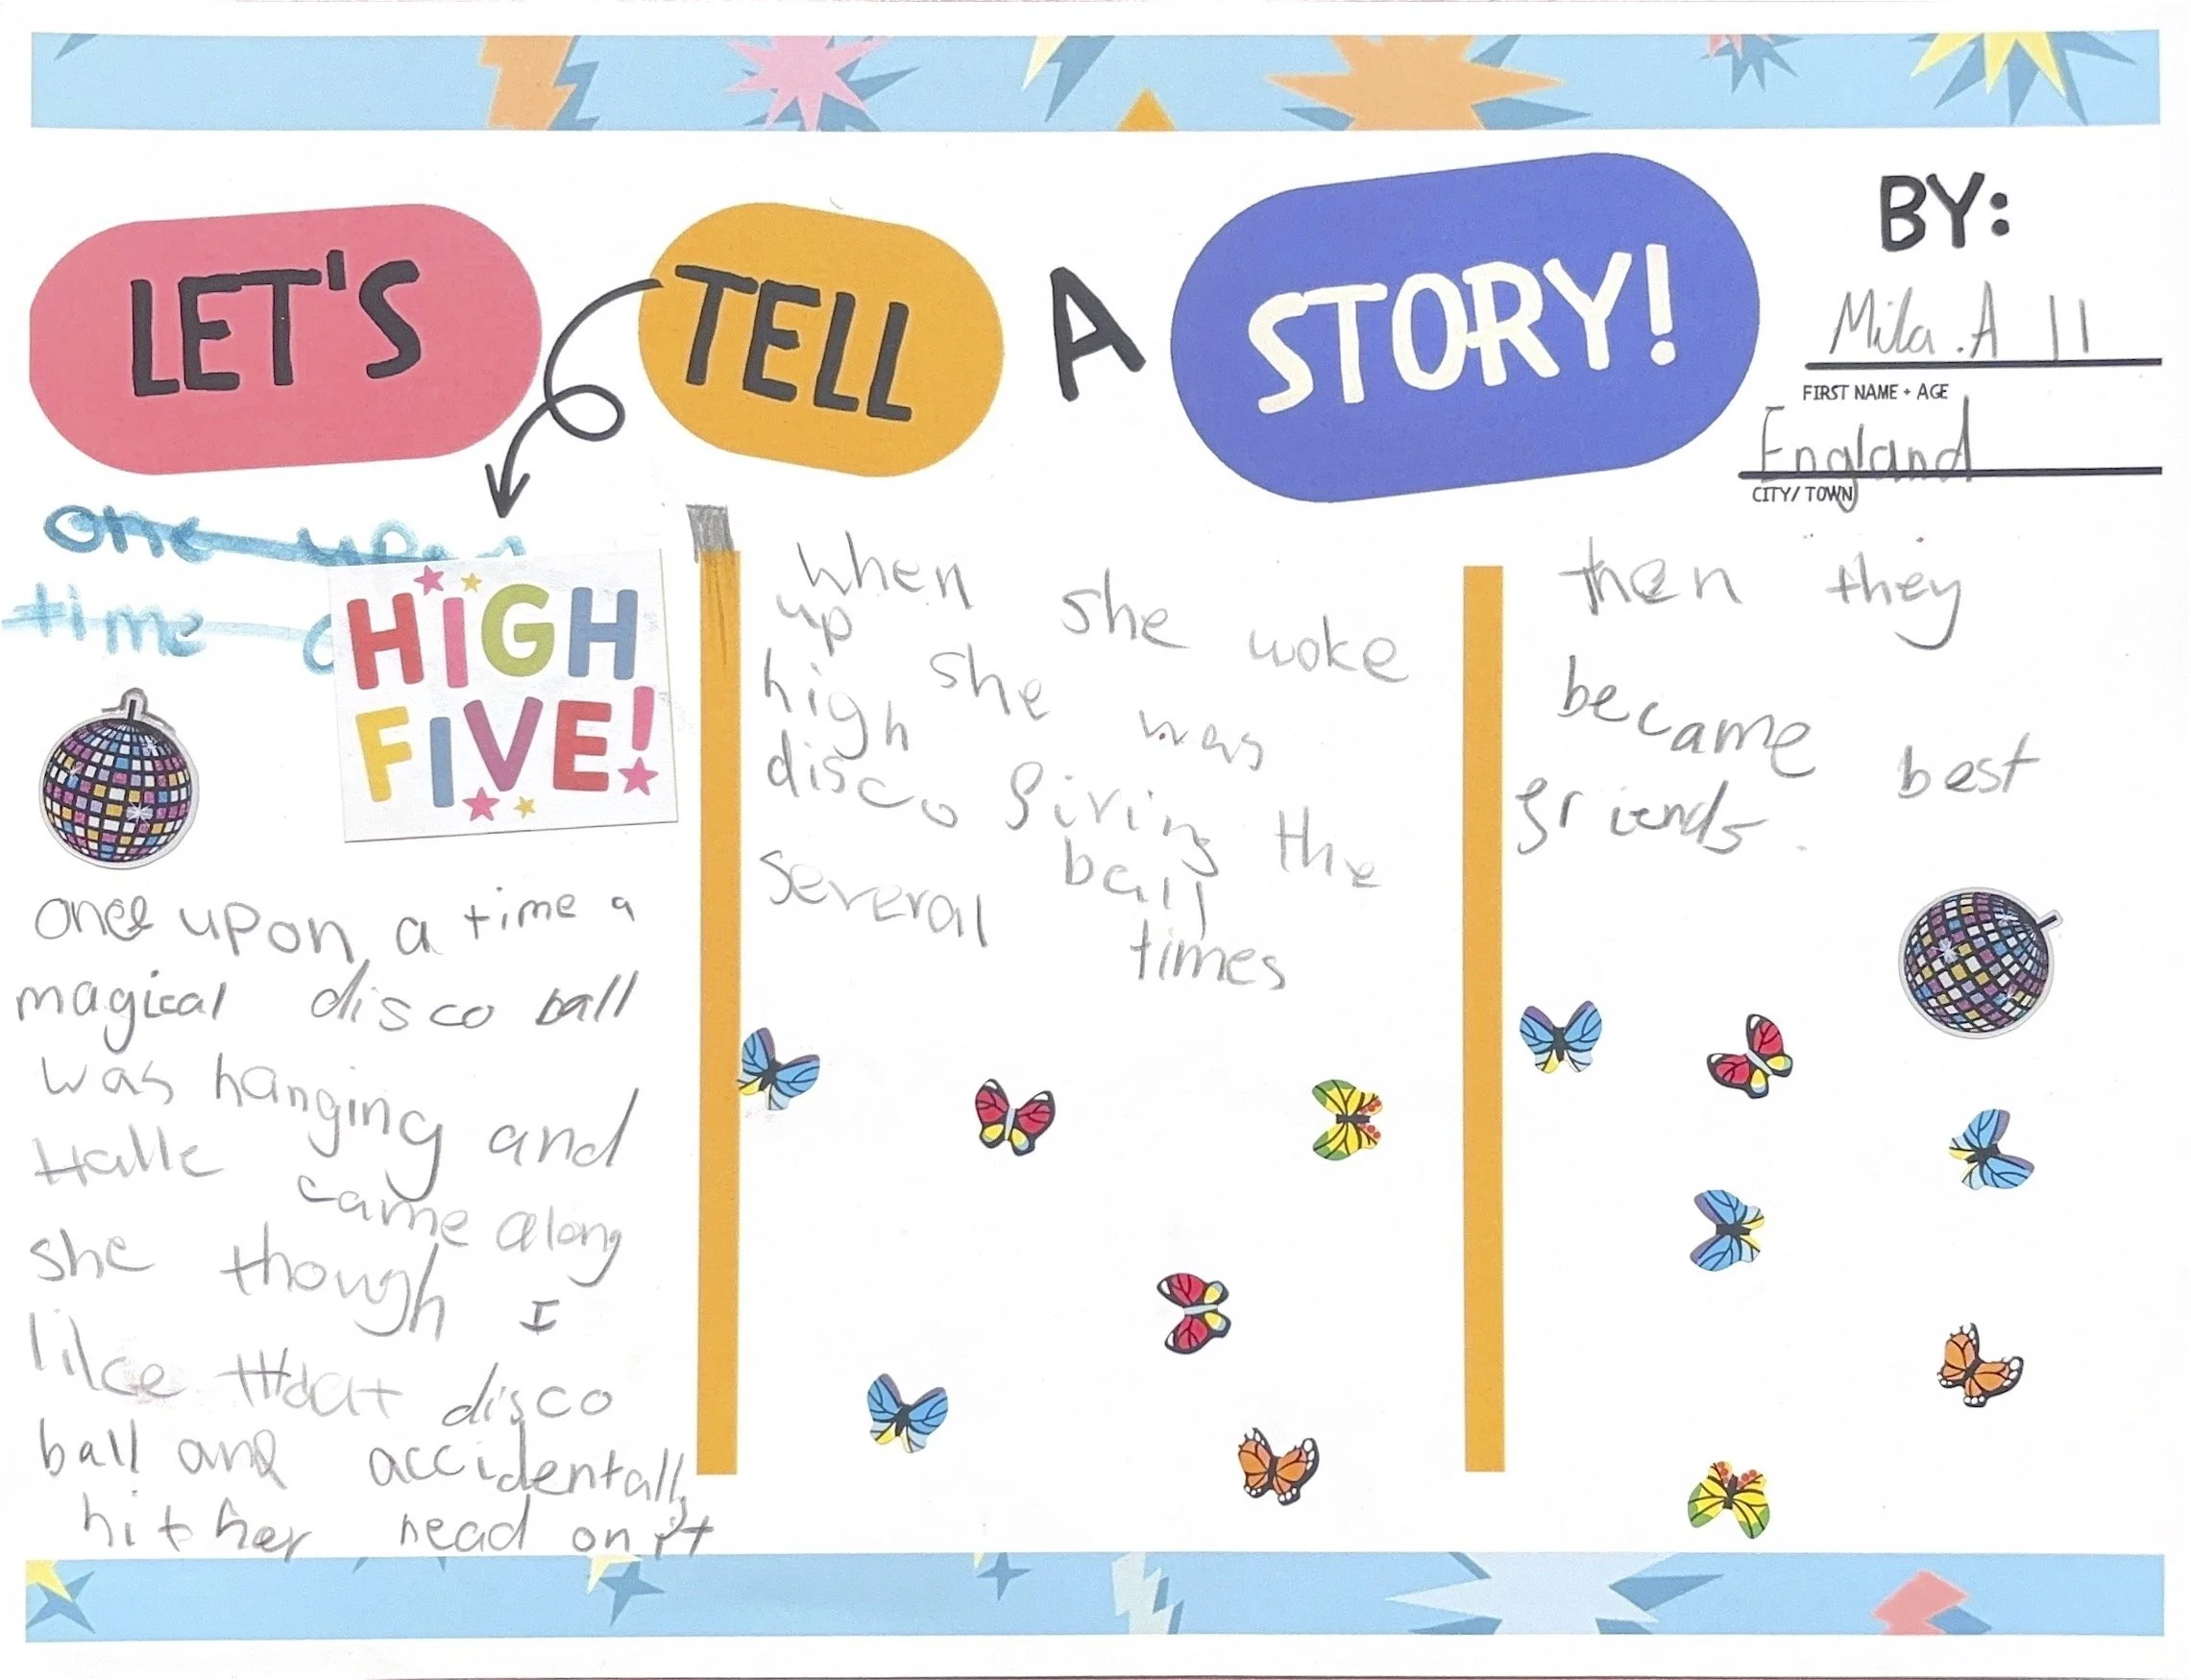 LET'S TELL A STORY!
BY:
Mila .A 11
FIRST NAME + AGE
England
CITY/ TOWN
one upon
time
HIGH
FIVE!
once upon a time a
magical disco ball
was hanging and
Halle came along
she though I
like that disco
ball and accidentally
hit her head on it
when she woke
up she was
high fiving the
disco ball
several times
then they
became best
friends.